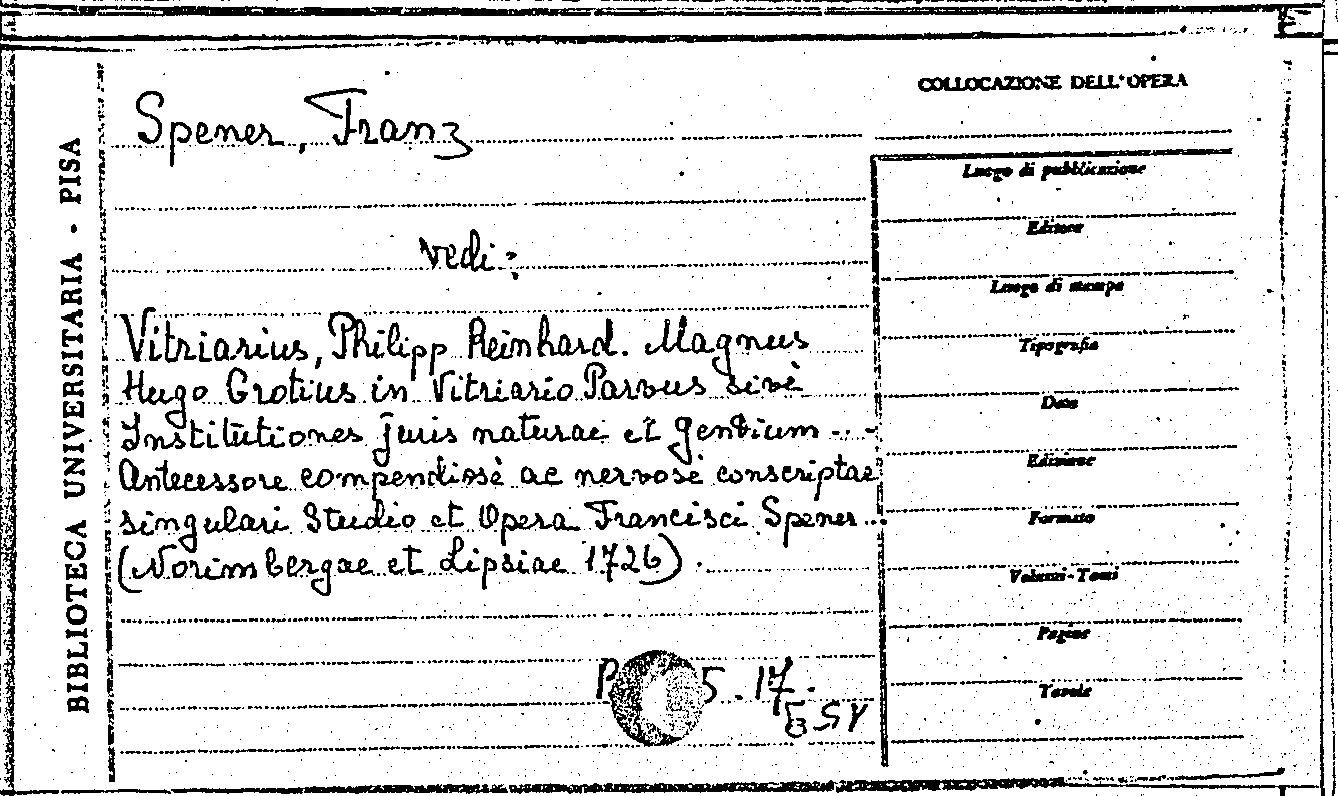 BIBLIOTECA UNIVERSITARIA - PISA
Spener, Franz
vedi:
Vitriarius, Philipp Reinhard. Magnus
Hugo Grotius in Vitriario Parvus sivè
Institutiones juris naturae et gentium ...
Antecessore compendiosè ac nervosè conscriptae
singulari Studio et Opera Francisci Spener ...
(Norimbergae et Lipsiae 1726).
5.17.
COLLOCAZIONE DELL'OPERA
Luogo di pubblicazione
Editore
Luogo di stampa
Tipografia
Data
Edizione
Formato
Volumi-Tomi
Pagine
Tavole